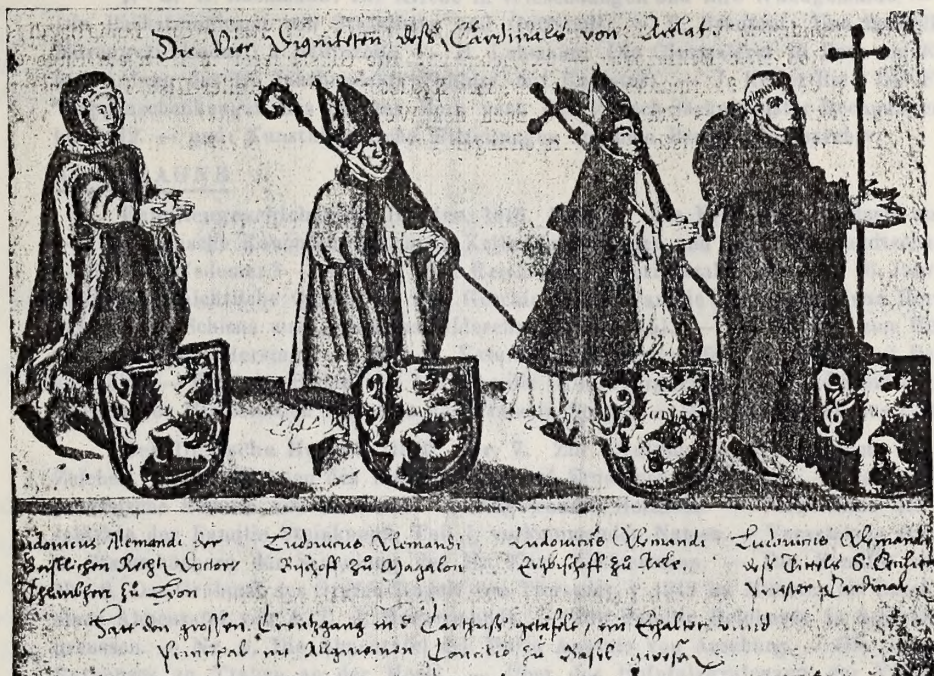 Die Vier Digniteten dess Cardinals von Arelat.
Ludovicus Alemandi der
Geistlichen Recht Doctor
Thumbherr zů Lyon
Ludovicus Alemandi
Bischoff zů Magalon
Ludovicus Alemandi
Ertzbischoff zů Arle.
Ludovicus Alemandi
dess Tittels S. Cecilien
Priester Cardinal
Hatt den grossen Creutzgang in der Carthuss getäfelt, ein Erhalter unnd
Principal im Allgemeinen Concilio zů Basel gwesen